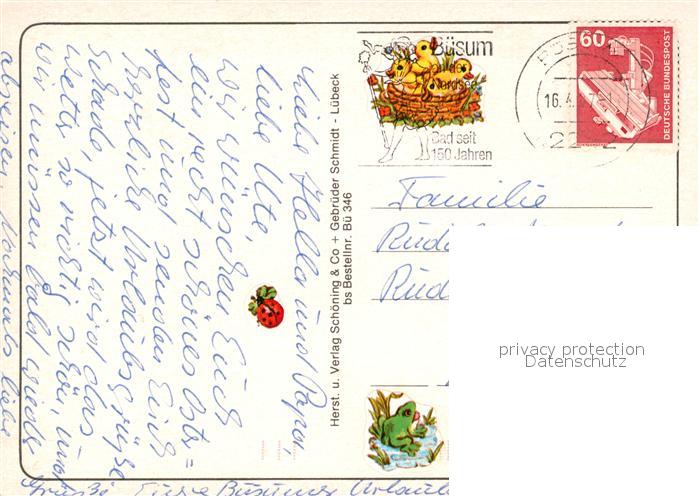 Liebe Hella und Papa,
liebe Ute,
wir wünschen Euch
e. recht schönes Oster=
fest und senden Euch
herzliche Urlaubsgrüße
Schade, jetzt wird das
Wetter so richtig schön, und
wir müssen bald wieder
abreisen. Nochmals liebe
Grüße Eure Büsumer Urlaub
Herst. u. Verlag Schöning & Co + Gebrüder Schmidt - Lübeck
bs Bestellnr. Bü 346
Büsum
an der
Nordsee
Bad seit
150 Jahren
16.4.
22
60
DEUTSCHE BUNDESPOST
Familie
Rudi
Rud
privacy protection
Datenschutz